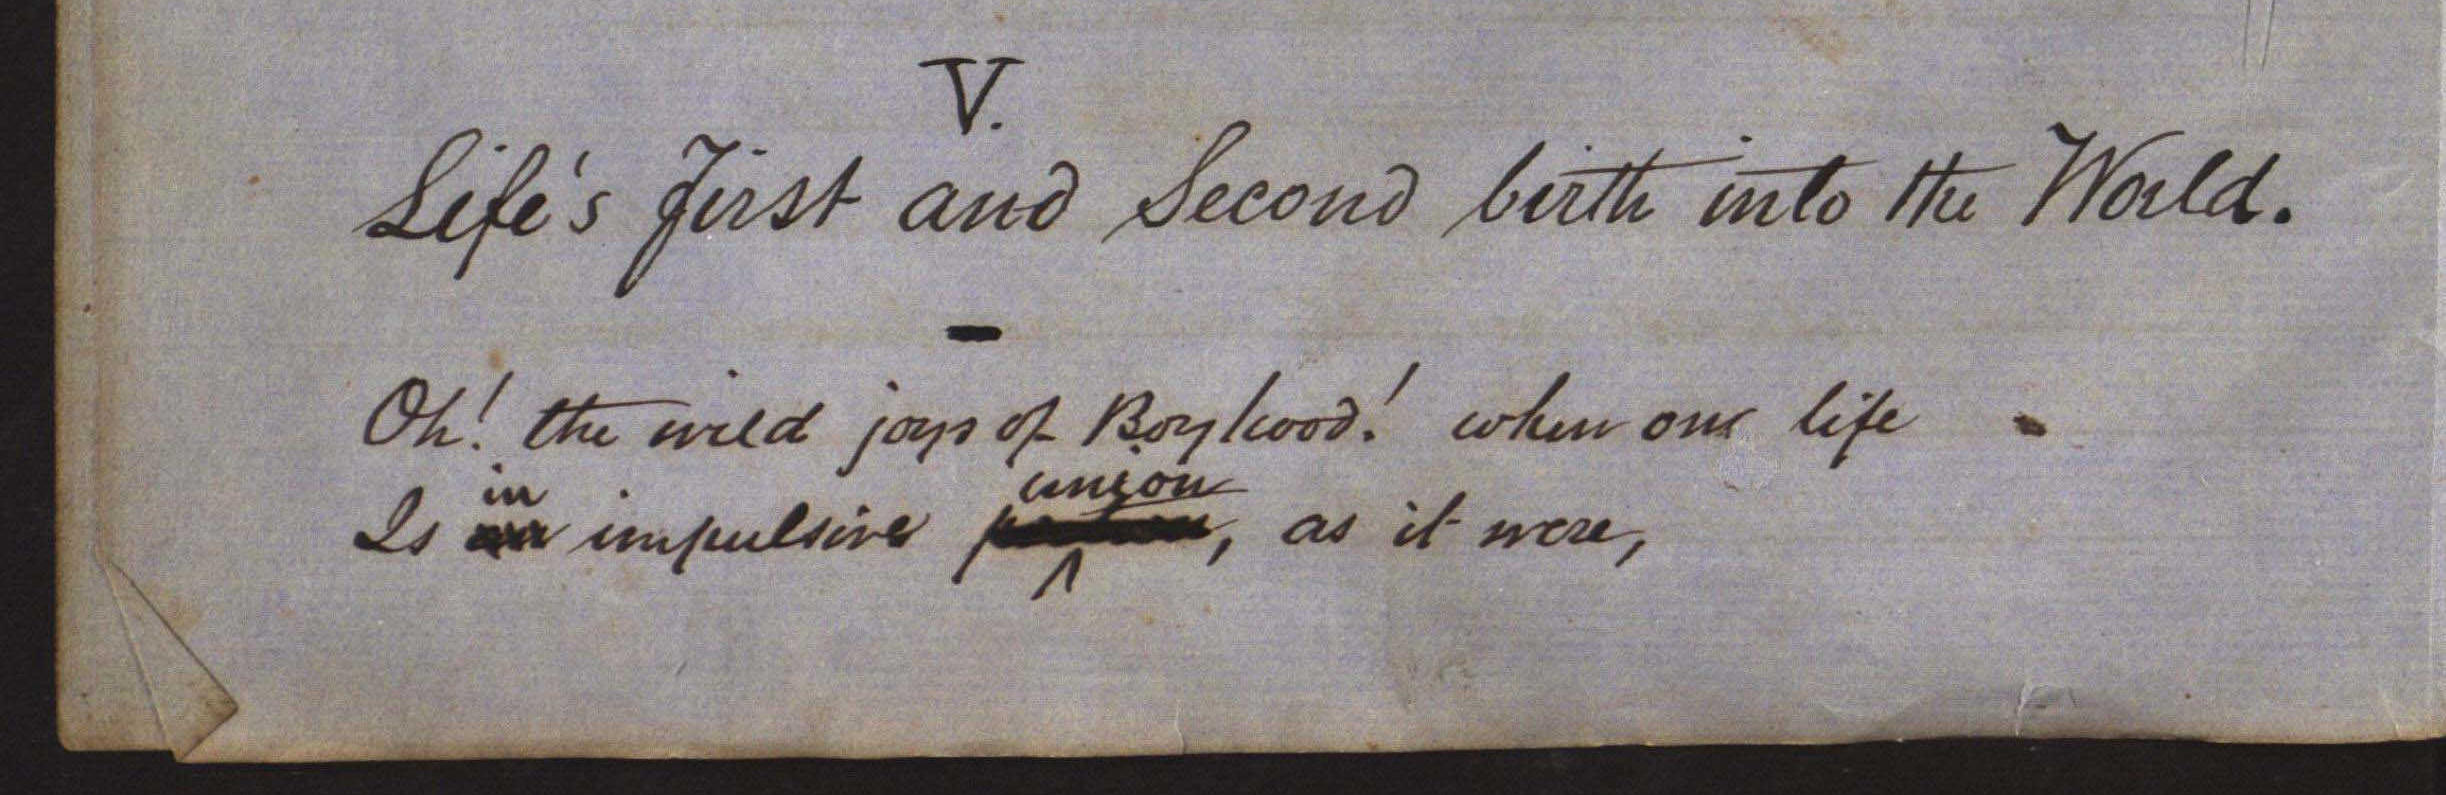 V.
Life's First and Second birth into the World.
Oh! the wild joys of Boyhood! when our life
in union
Is impulsive , as it were,